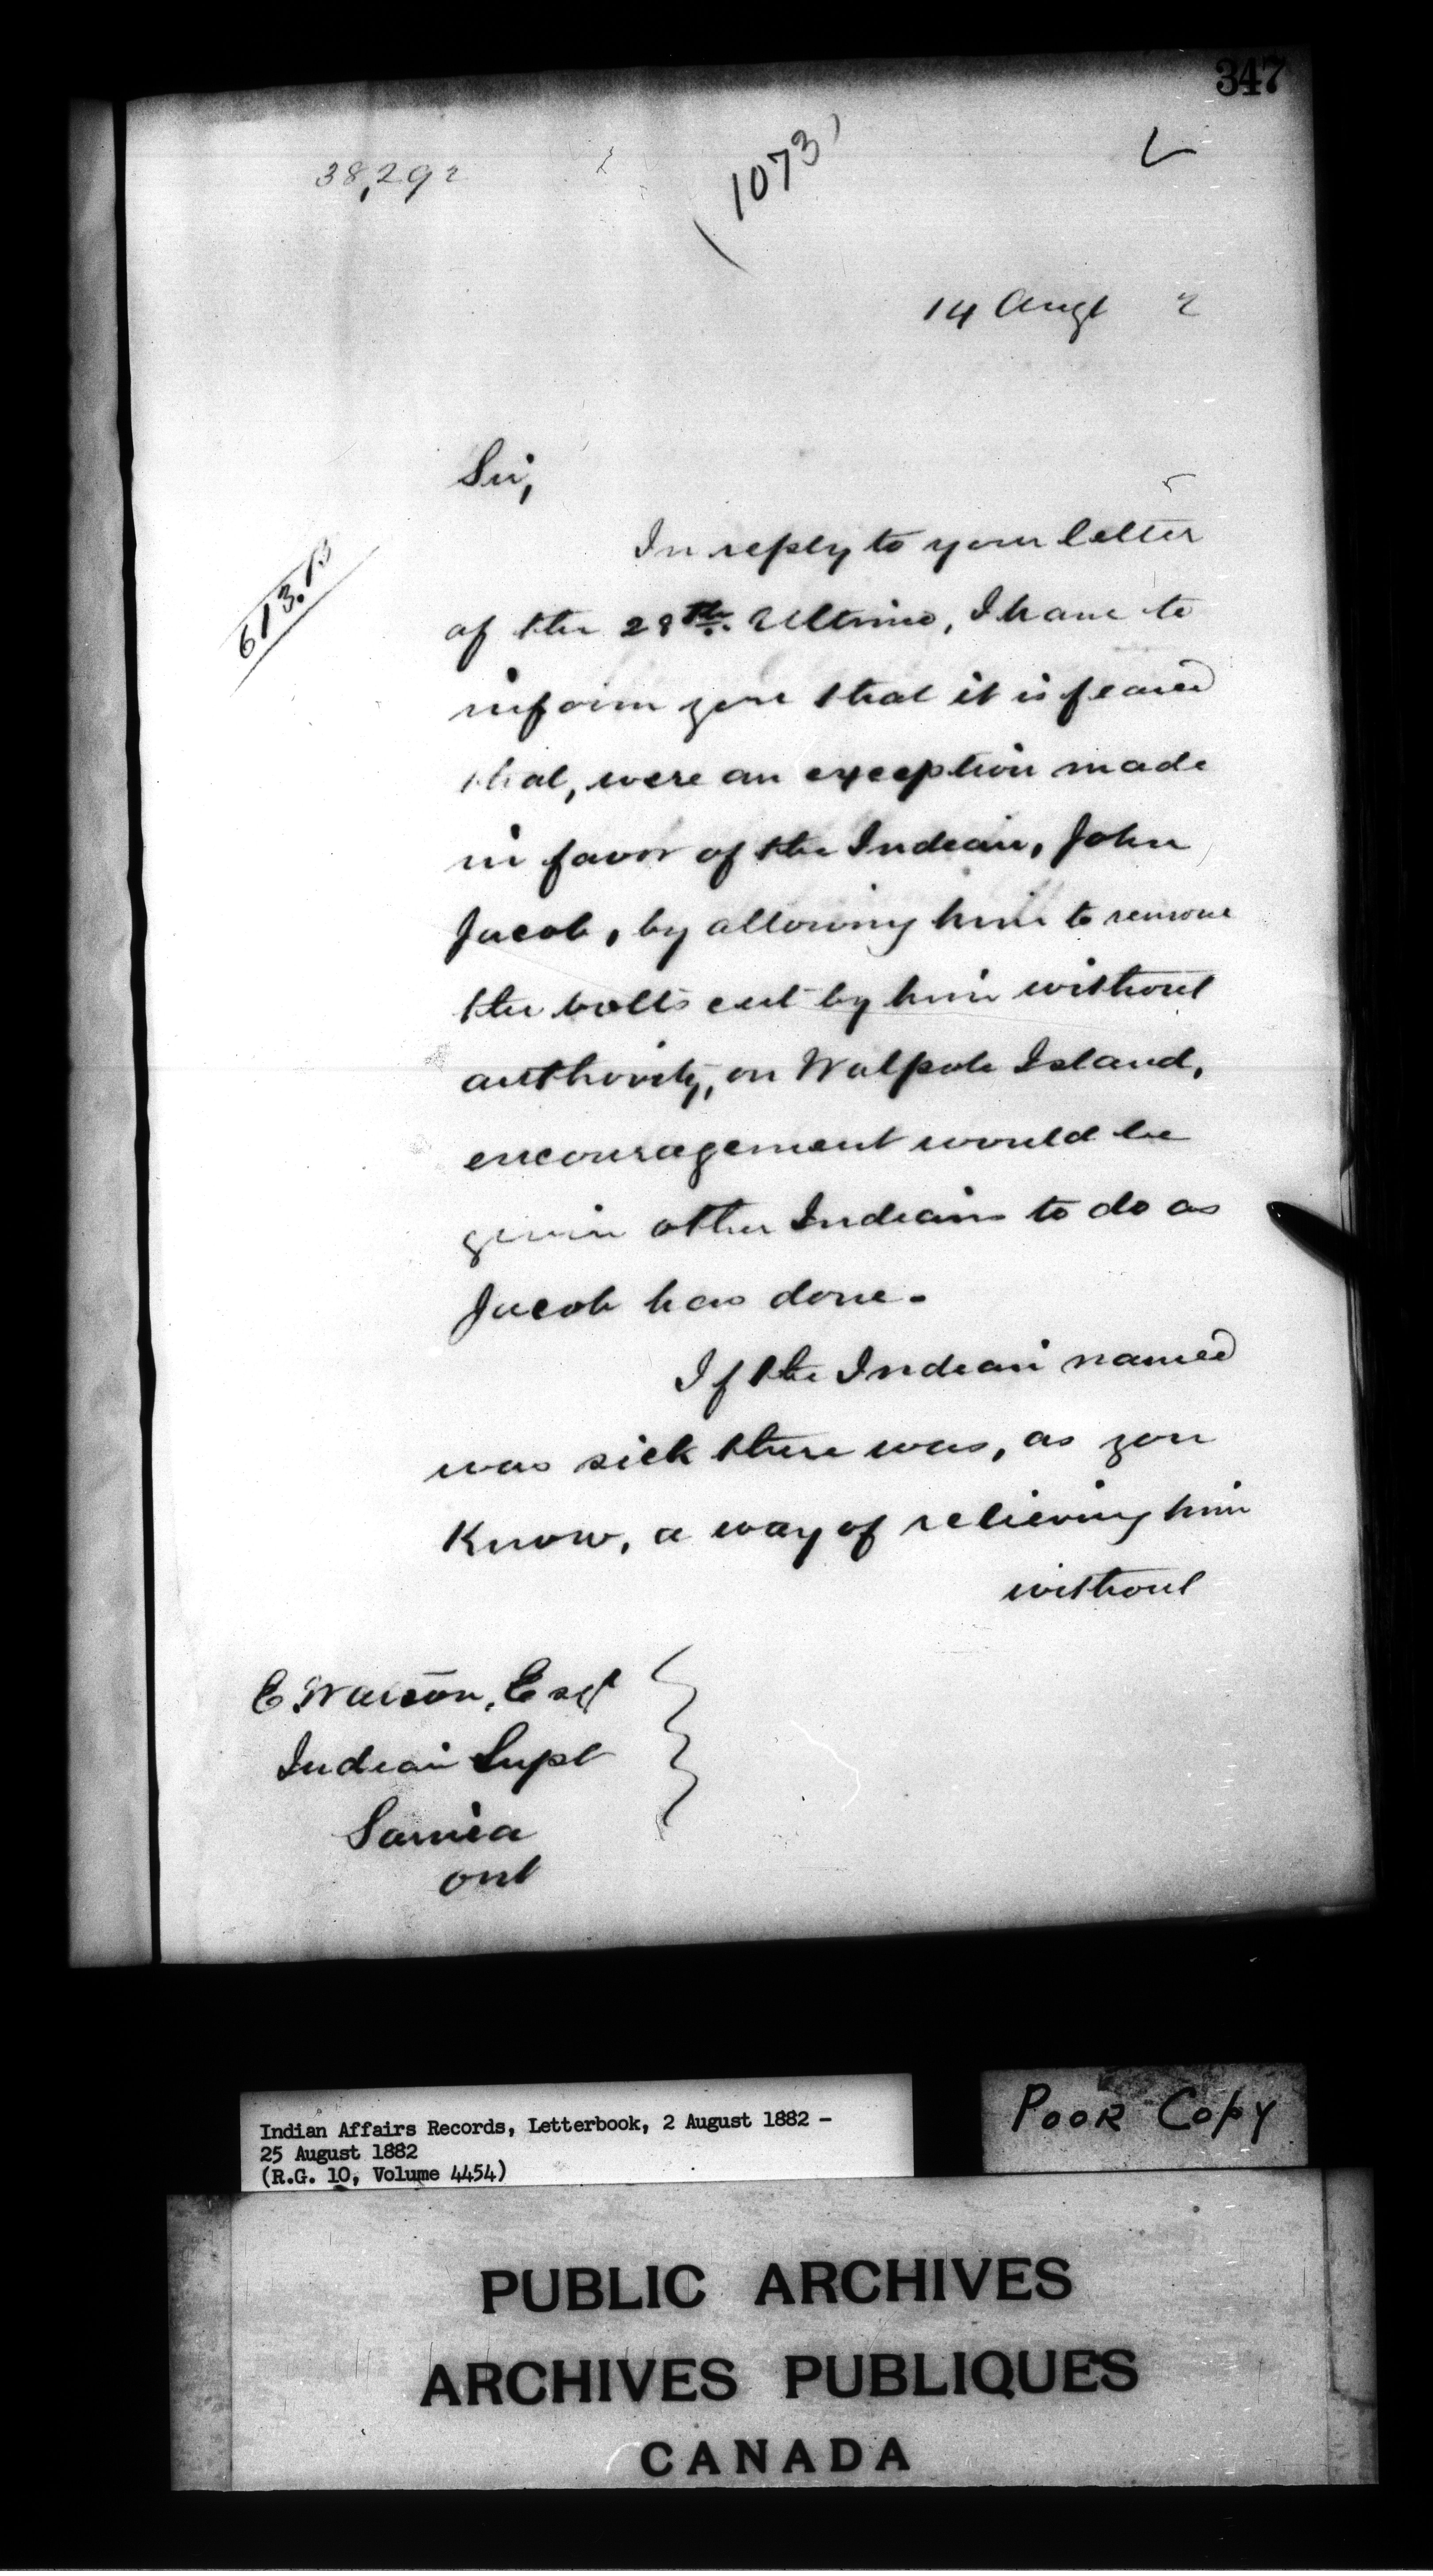 347
38,292
(1073)
14 Augt 2
Sir,
In reply to your letter
of the 28th. Ultimo, I have to
inform you that it is feared
that, were an exception made
in favor of the Indian, John
Jacob, by allowing him to remove
the bolts cut by him without
authority, on Walpole Island,
encouragement would be
given other Indians to do as
Jacob has done.
If the Indian named
was sick there was, as you
Know, a way of relieving him
without
E. Watson, Esqr
Indian Supt
Sarnia
Ont
Indian Affairs Records, Letterbook, 2 August 1882 -
25 August 1882
(R.G. 10, Volume 4454)
POOR COPY
PUBLIC ARCHIVES
ARCHIVES PUBLIQUES
CANADA